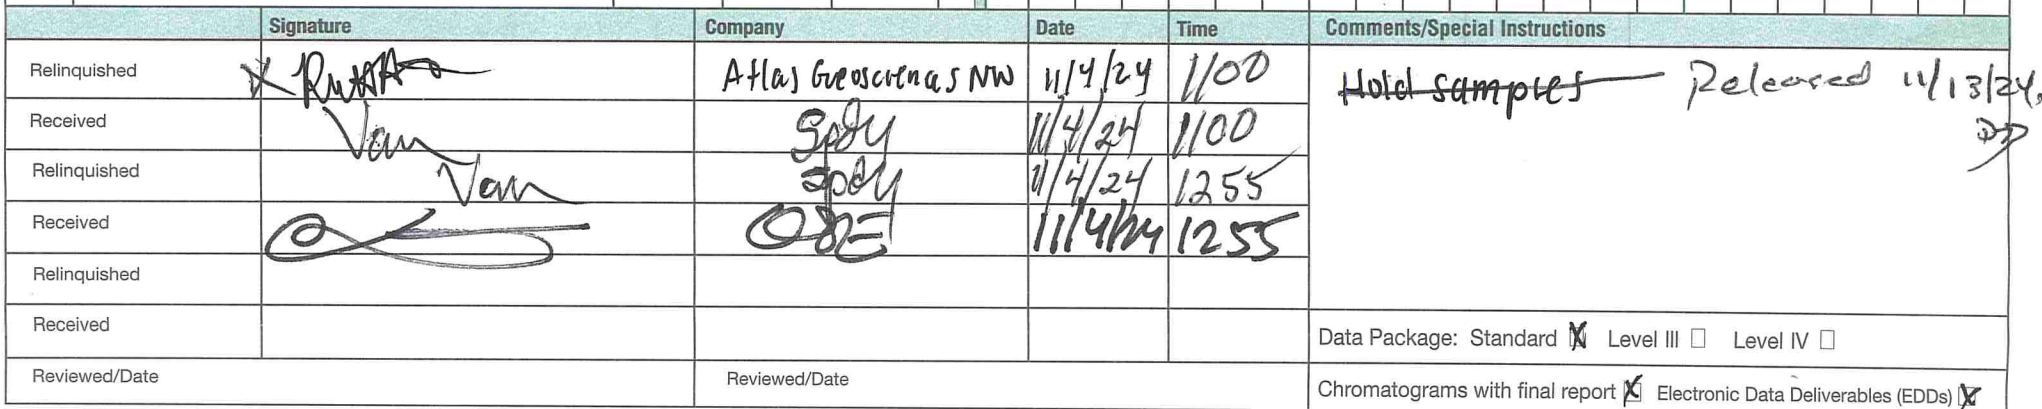 Signature Company Date Time Comments/Special Instructions
Relinquished Atlas Geosciences NW 11/4/24 1100 Hold samples Released 11/13/24.
Received Spdy 11/4/24 1100
Relinquished Spdy 11/4/24 1255
Received OBE 11/4/24 1255
Relinquished
Received
Data Package: Standard X Level III □ Level IV □
Reviewed/Date Reviewed/Date
Chromatograms with final report X Electronic Data Deliverables (EDDs) X